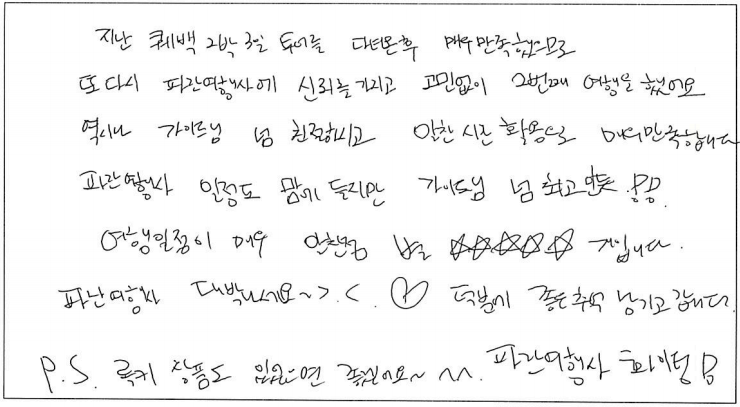 지난 퀘백 2박 3일 투어를 다녀온후 매우만족했으므로
또 다시 파란여행사에 신뢰를 가지고 고민없이 2번째 여행을 했어요
역시나 가이드님 넘 친절하시고 알찬 시간 활용으로 매우만족합니다
파란여행사 일정도 맘에 들지만 가이드님 넘 최고
여행일정이 매우 알찬 별 ☆☆☆☆☆ 개입니다.
파란여행사 대박나세요~ >.< ♡ 덕분에 좋은추억 남기고 갑니다.
P.S. 록키 상품도 있으면 좋겠어요~ ^^. 파란여행사 화이팅